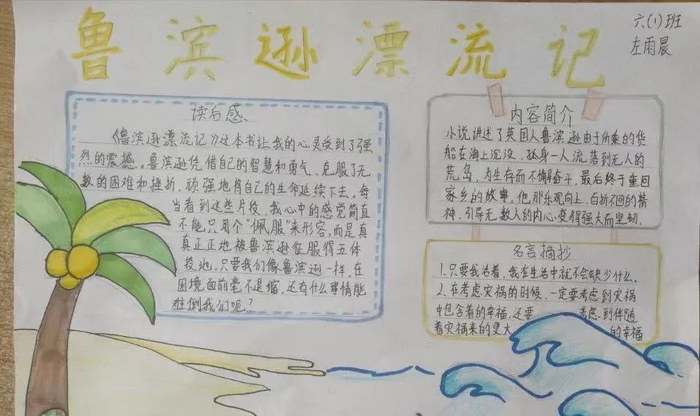 鲁滨逊漂流记
六(1)班
左雨晨
读后感
《鲁滨逊漂流记》这本书让我的心灵受到了强
烈的震撼。鲁滨逊凭借自己的智慧和勇气、克服了无
数的困难和挫折，顽强地将自己的生命延续下去。每
当看到这些片段，我心中的感觉简直
不能只用个“佩服”来形容，而是真
真正正地被鲁滨逊征服得五体
投地。只要我们像鲁滨逊一样，在
困境面前毫不退缩，还有什么事情能
难倒我们呢？
内容简介
小说讲述了英国人鲁滨逊由于所乘的货
船在海上沉没，孤身一人流落到无人的
荒岛，为生存而不懈奋斗，最后终于重回
家乡的故事。他那乐观向上、百折不回的精
神，引导无数人的内心变得强大而坚韧。
名言摘抄
1.只要我活着，我在生活中就不会缺少什么。
2.在考虑灾祸的时候，一定要考虑到灾祸
中包含着的幸福，还要 考虑到伴随
着灾祸来的更大 的幸福